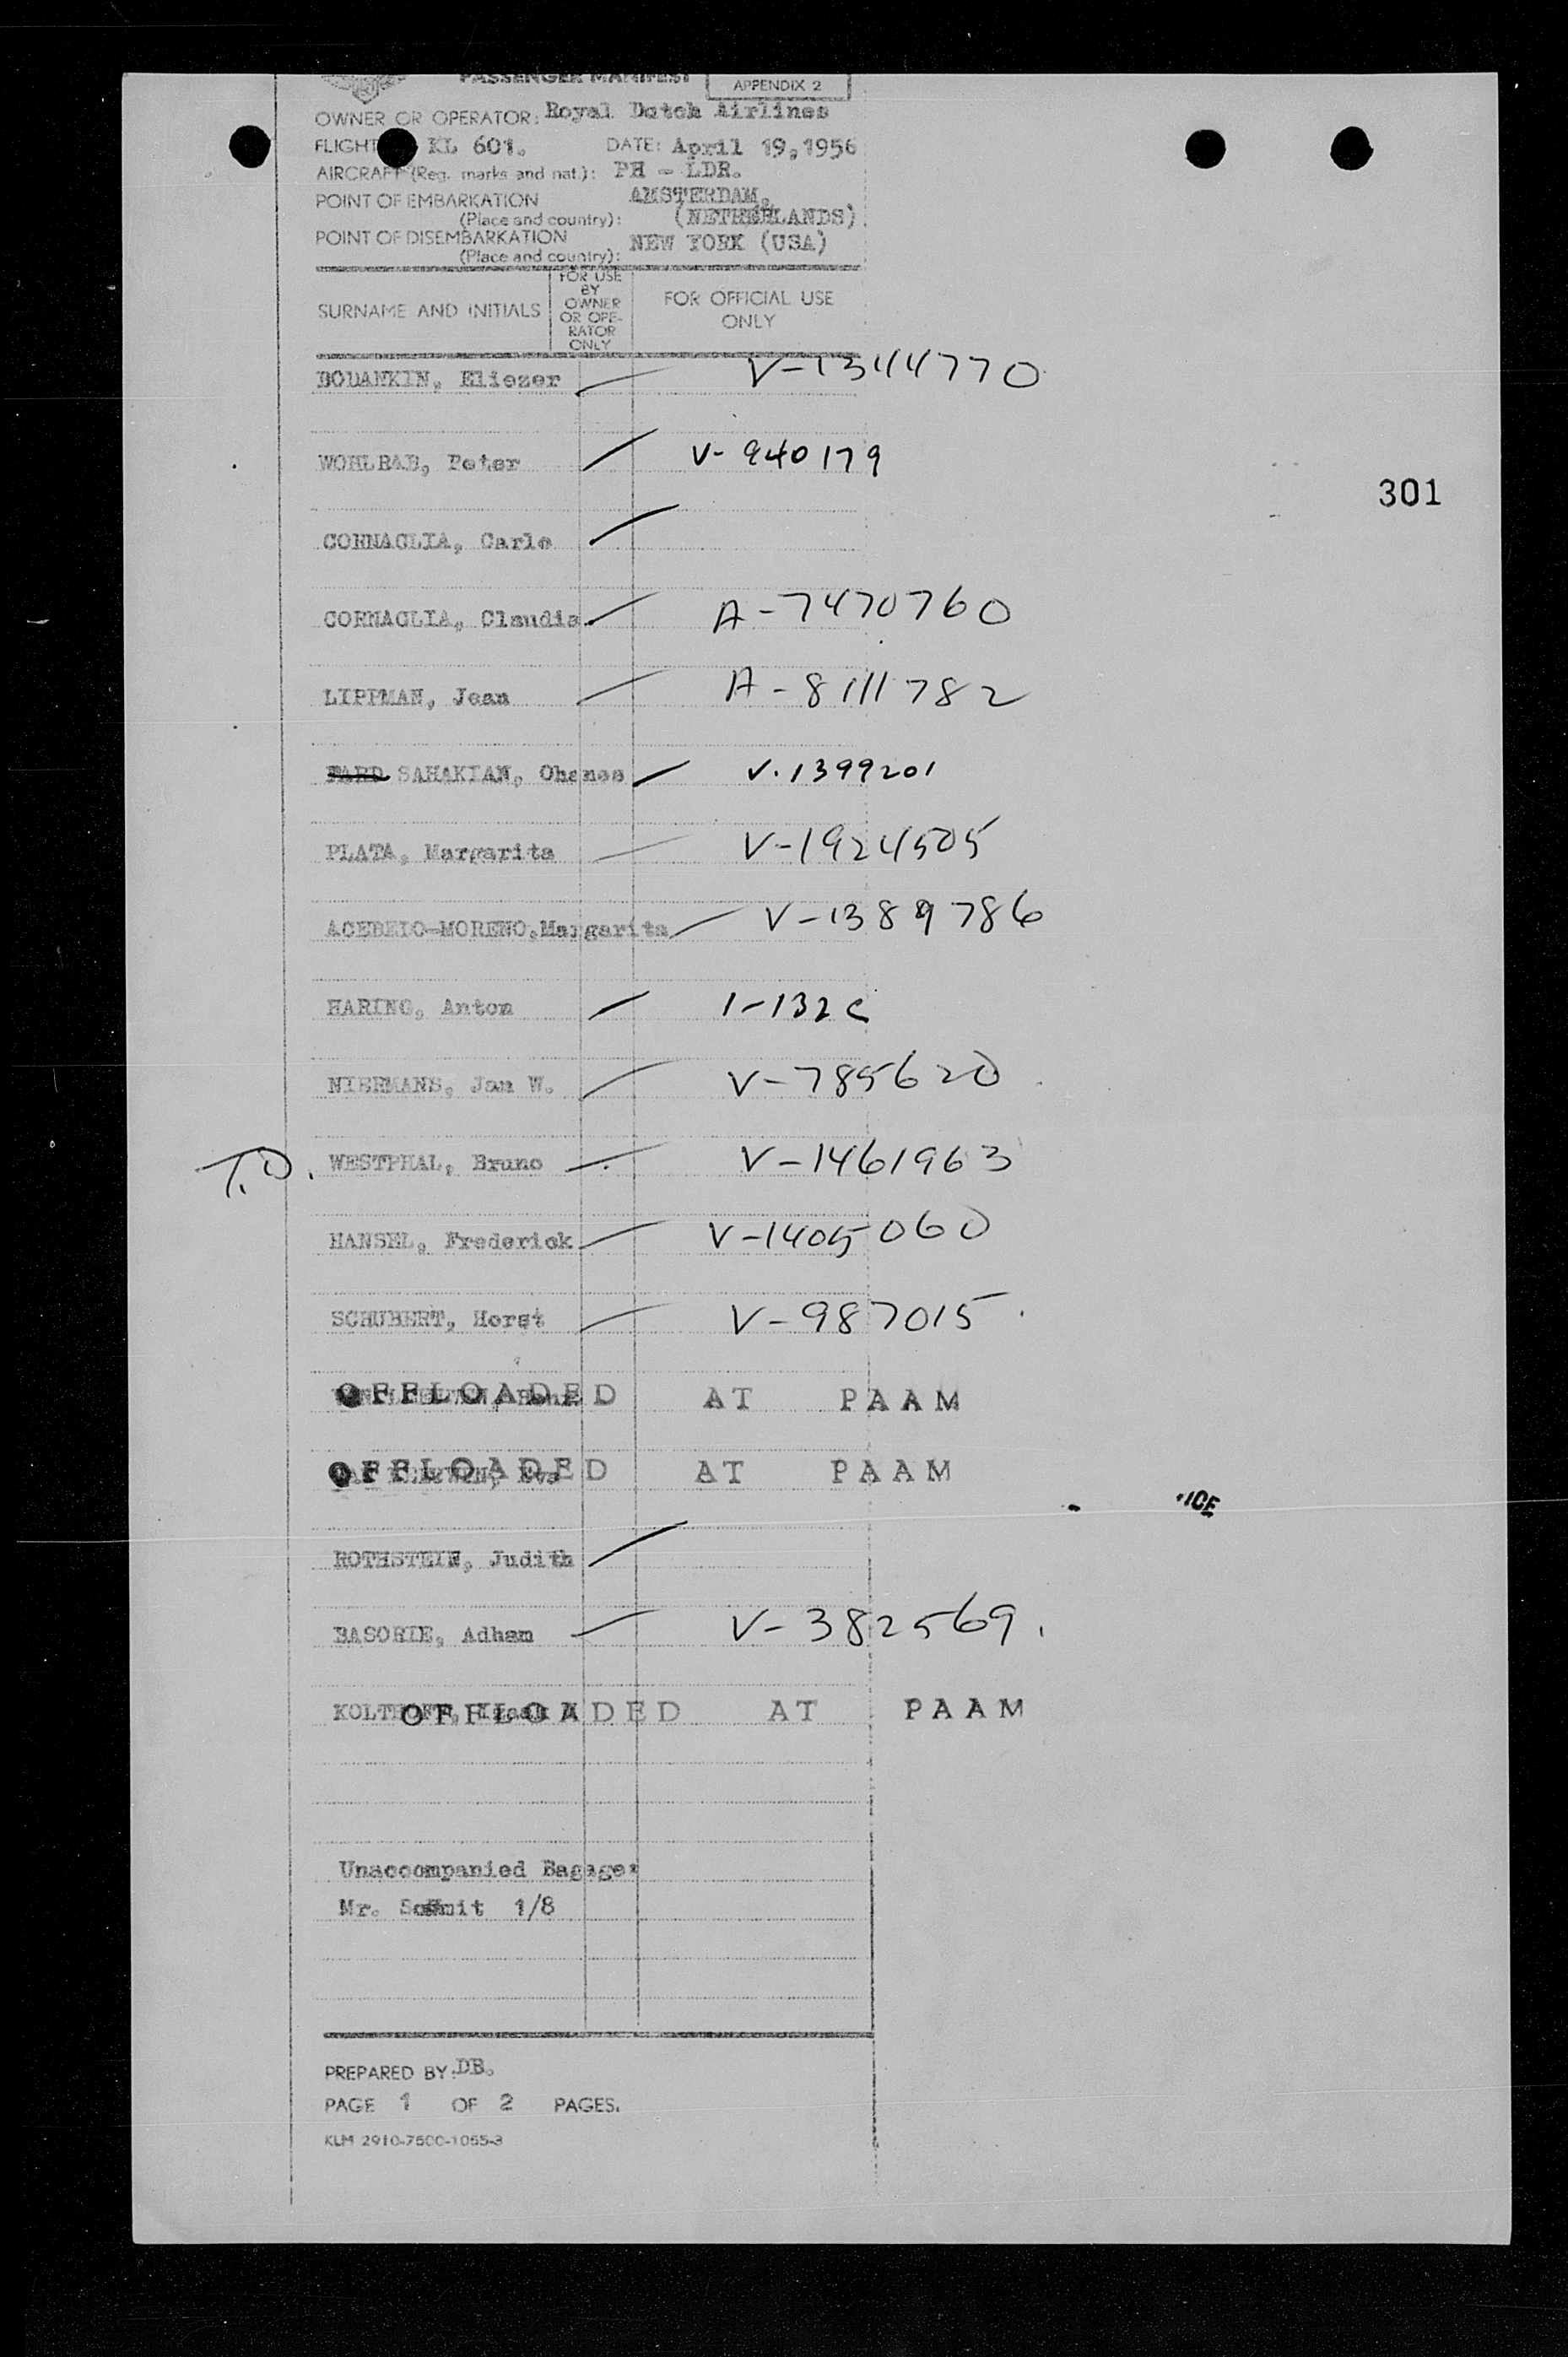 PASSENGER MANIFEST APPENDIX 2
OWNER OR OPERATOR: Royal Dutch Airlines
FLIGHT KL 601. DATE: April 19, 1956
AIRCRAFT (Reg. marks and nat.): PH - LDR.
POINT OF EMBARKATION AMSTERDAM,
(Place and country): (NETHERLANDS)
POINT OF DISEMBARKATION NEW YORK (USA)
(Place and country):
SURNAME AND INITIALS
FOR USE
BY
OWNER
OR OPE-
RATOR
ONLY
FOR OFFICIAL USE
ONLY
BODANKIN, Eliezer V-1344770
WOHLRAB, Peter V-940179
301
CORNAGLIA, Carlo
CORNAGLIA, Claudia A-7470760
LIPPMAN, Jean A-8111782
SAHAKIAN, Ohanes V.1399201
PLATA, Margarita V-1924505
ACEBEDO-MORENO, Margarita V-1389786
HARING, Anton 1-132c
NIERMANS, Jan W. V-785620
T.D. WESTPHAL, Bruno V-1461963
HANSEL, Frederick V-1405060
SCHUBERT, Horst V-987015
OFFLOADED AT PAAM
OFFLOADED AT PAAM
ICE
ROTHSTEIN, Judith
BASORIE, Adham V-382569
OFFLOADED AT PAAM
Unaccompanied Bagage:
Mr. 1/8
PREPARED BY: DB.
PAGE 1 OF 2 PAGES.
KLM 2910-7500-1055-3